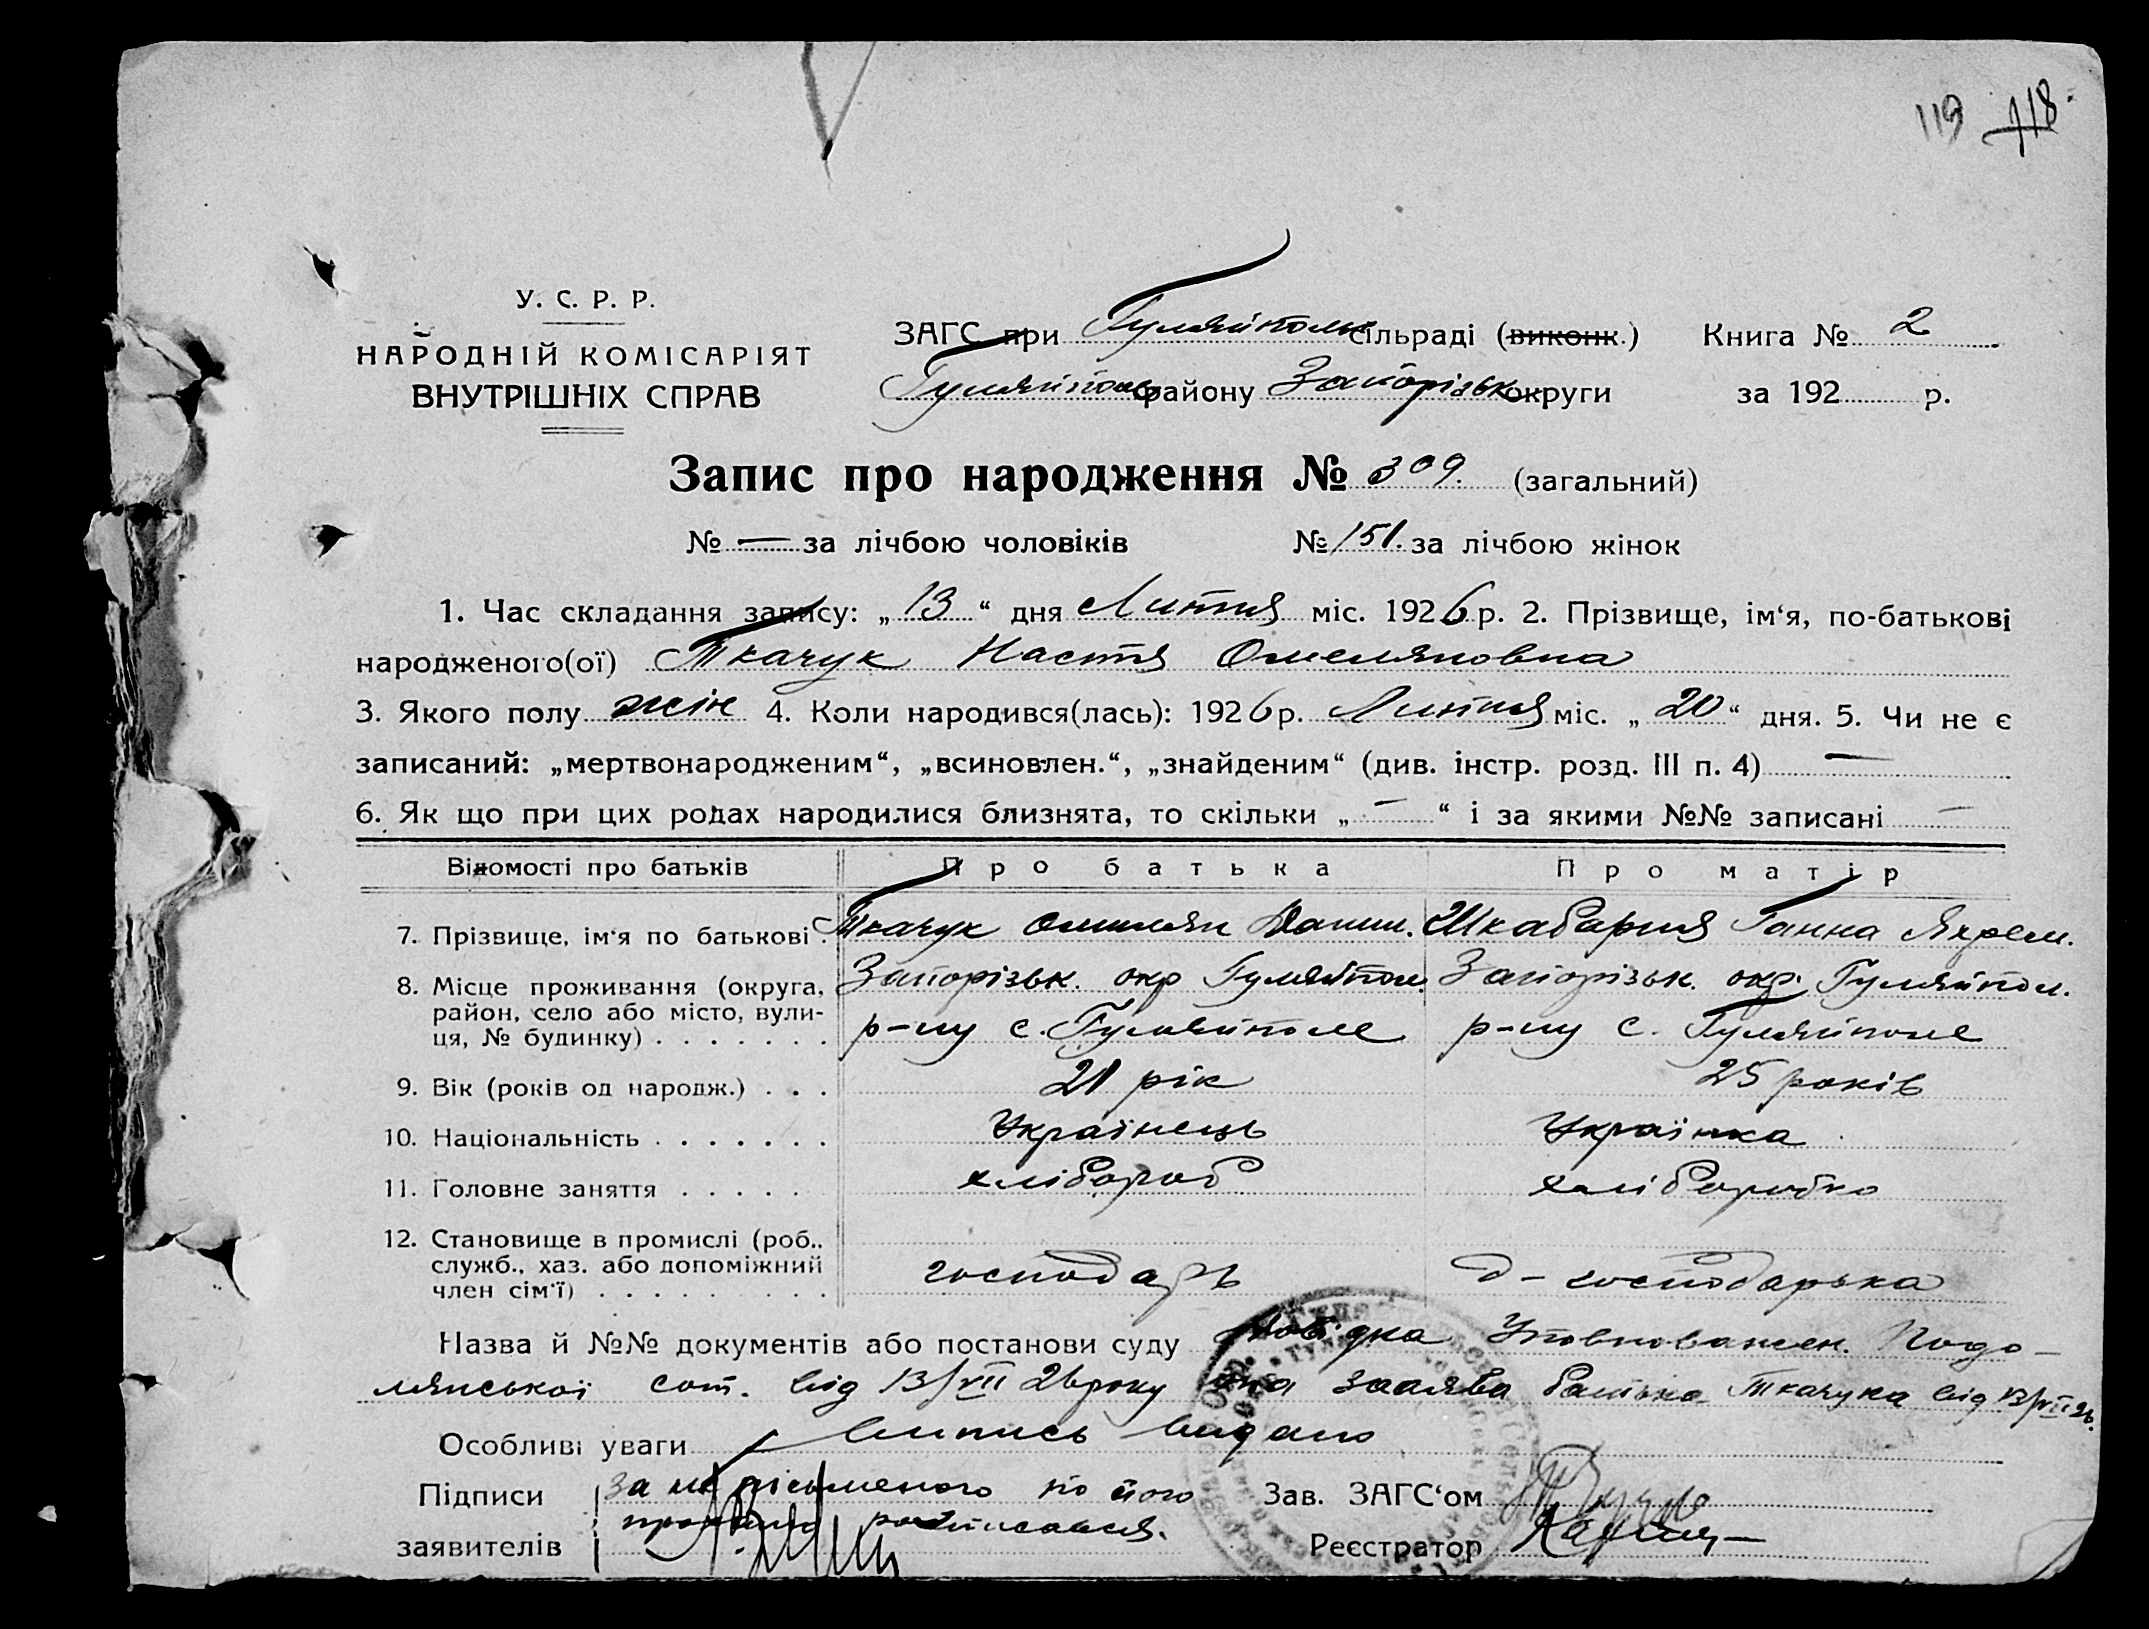 119 118
У. С. Р. Р.
НАРОДНІЙ КОМІСАРІЯТ
ВНУТРІШНІХ СПРАВ
ЗАГС при Гуляйпольс сільраді (виконк.) Книга № 2
Гуляйполь району Запорізьк округи за 192 р.
Запис про народження № 309. (загальний)
№ — за лічбою чоловіків № 151. за лічбою жінок
1. Час складання запису: „13“ дня Липня міс. 1926 р. 2. Прізвище, ім‘я, по-батькові
народженого(ої) Ткачук Настя Омеляновна
3. Якого полу жін 4. Коли народився(лась): 1926 р. Липня міс. „20“ дня. 5. Чи не є
записаний: „мертвонародженим“, „всиновлен.“, „знайденим“ (див. інстр. розд. III п. 4) —
6. Як що при цих родах народилися близнята, то скільки „—“ і за якими №№ записані —
Відомості про батьків Про батька Про матір
7. Прізвище, ім‘я по батькові . Ткачук Омилян Данил. Шкабарня Ганна Яхрем.
8. Місце проживання (округа, Запорізьк. окр Гуляйпол. Запорізьк. окр. Гуляйпол.
район, село або місто, вули-
ця, № будинку) . . . . . . . р-ну с. Гуляйполе р-ну с. Гуляйполе
9. Вік (років од народж.) . . . 21 рік 25 років
10. Національність . . . . . . . Українець Українка
11. Головне заняття . . . . . хлібороб хліборобка
12. Становище в промислі (роб.,
служб., хаз. або допоміжний господарь д-господарька
член сім‘ї) . . . . . . . .
Назва й №№ документів або постанови суду Довідка Уповноважен. Подо-
лянської сот. від 13/VII 26 року та заява батька Ткачука від 13/VII 26.
Особливі уваги Випись видано
Підписи За неписьменого по його Зав. ЗАГС‘ом
проханню розписався.
заявителів Реєстратор